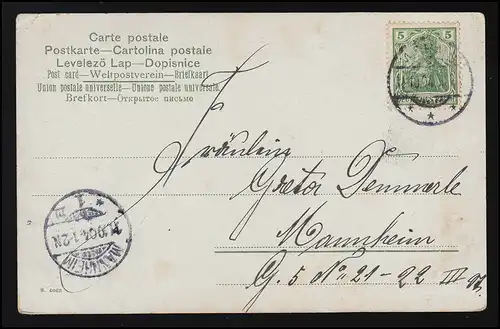 Carte postale
Postkarte—Cartolina postale
Levelező Lap—Dopisnice
Post card—Weltpostverein—Briefkaart
Union postale universelle—Unione postale universale
Brefkort—Открытое письмо
5 5
Fräulein
Greta Demmerle
Mannheim
G. 5 No. 21-22 III
MANNHEIM
2